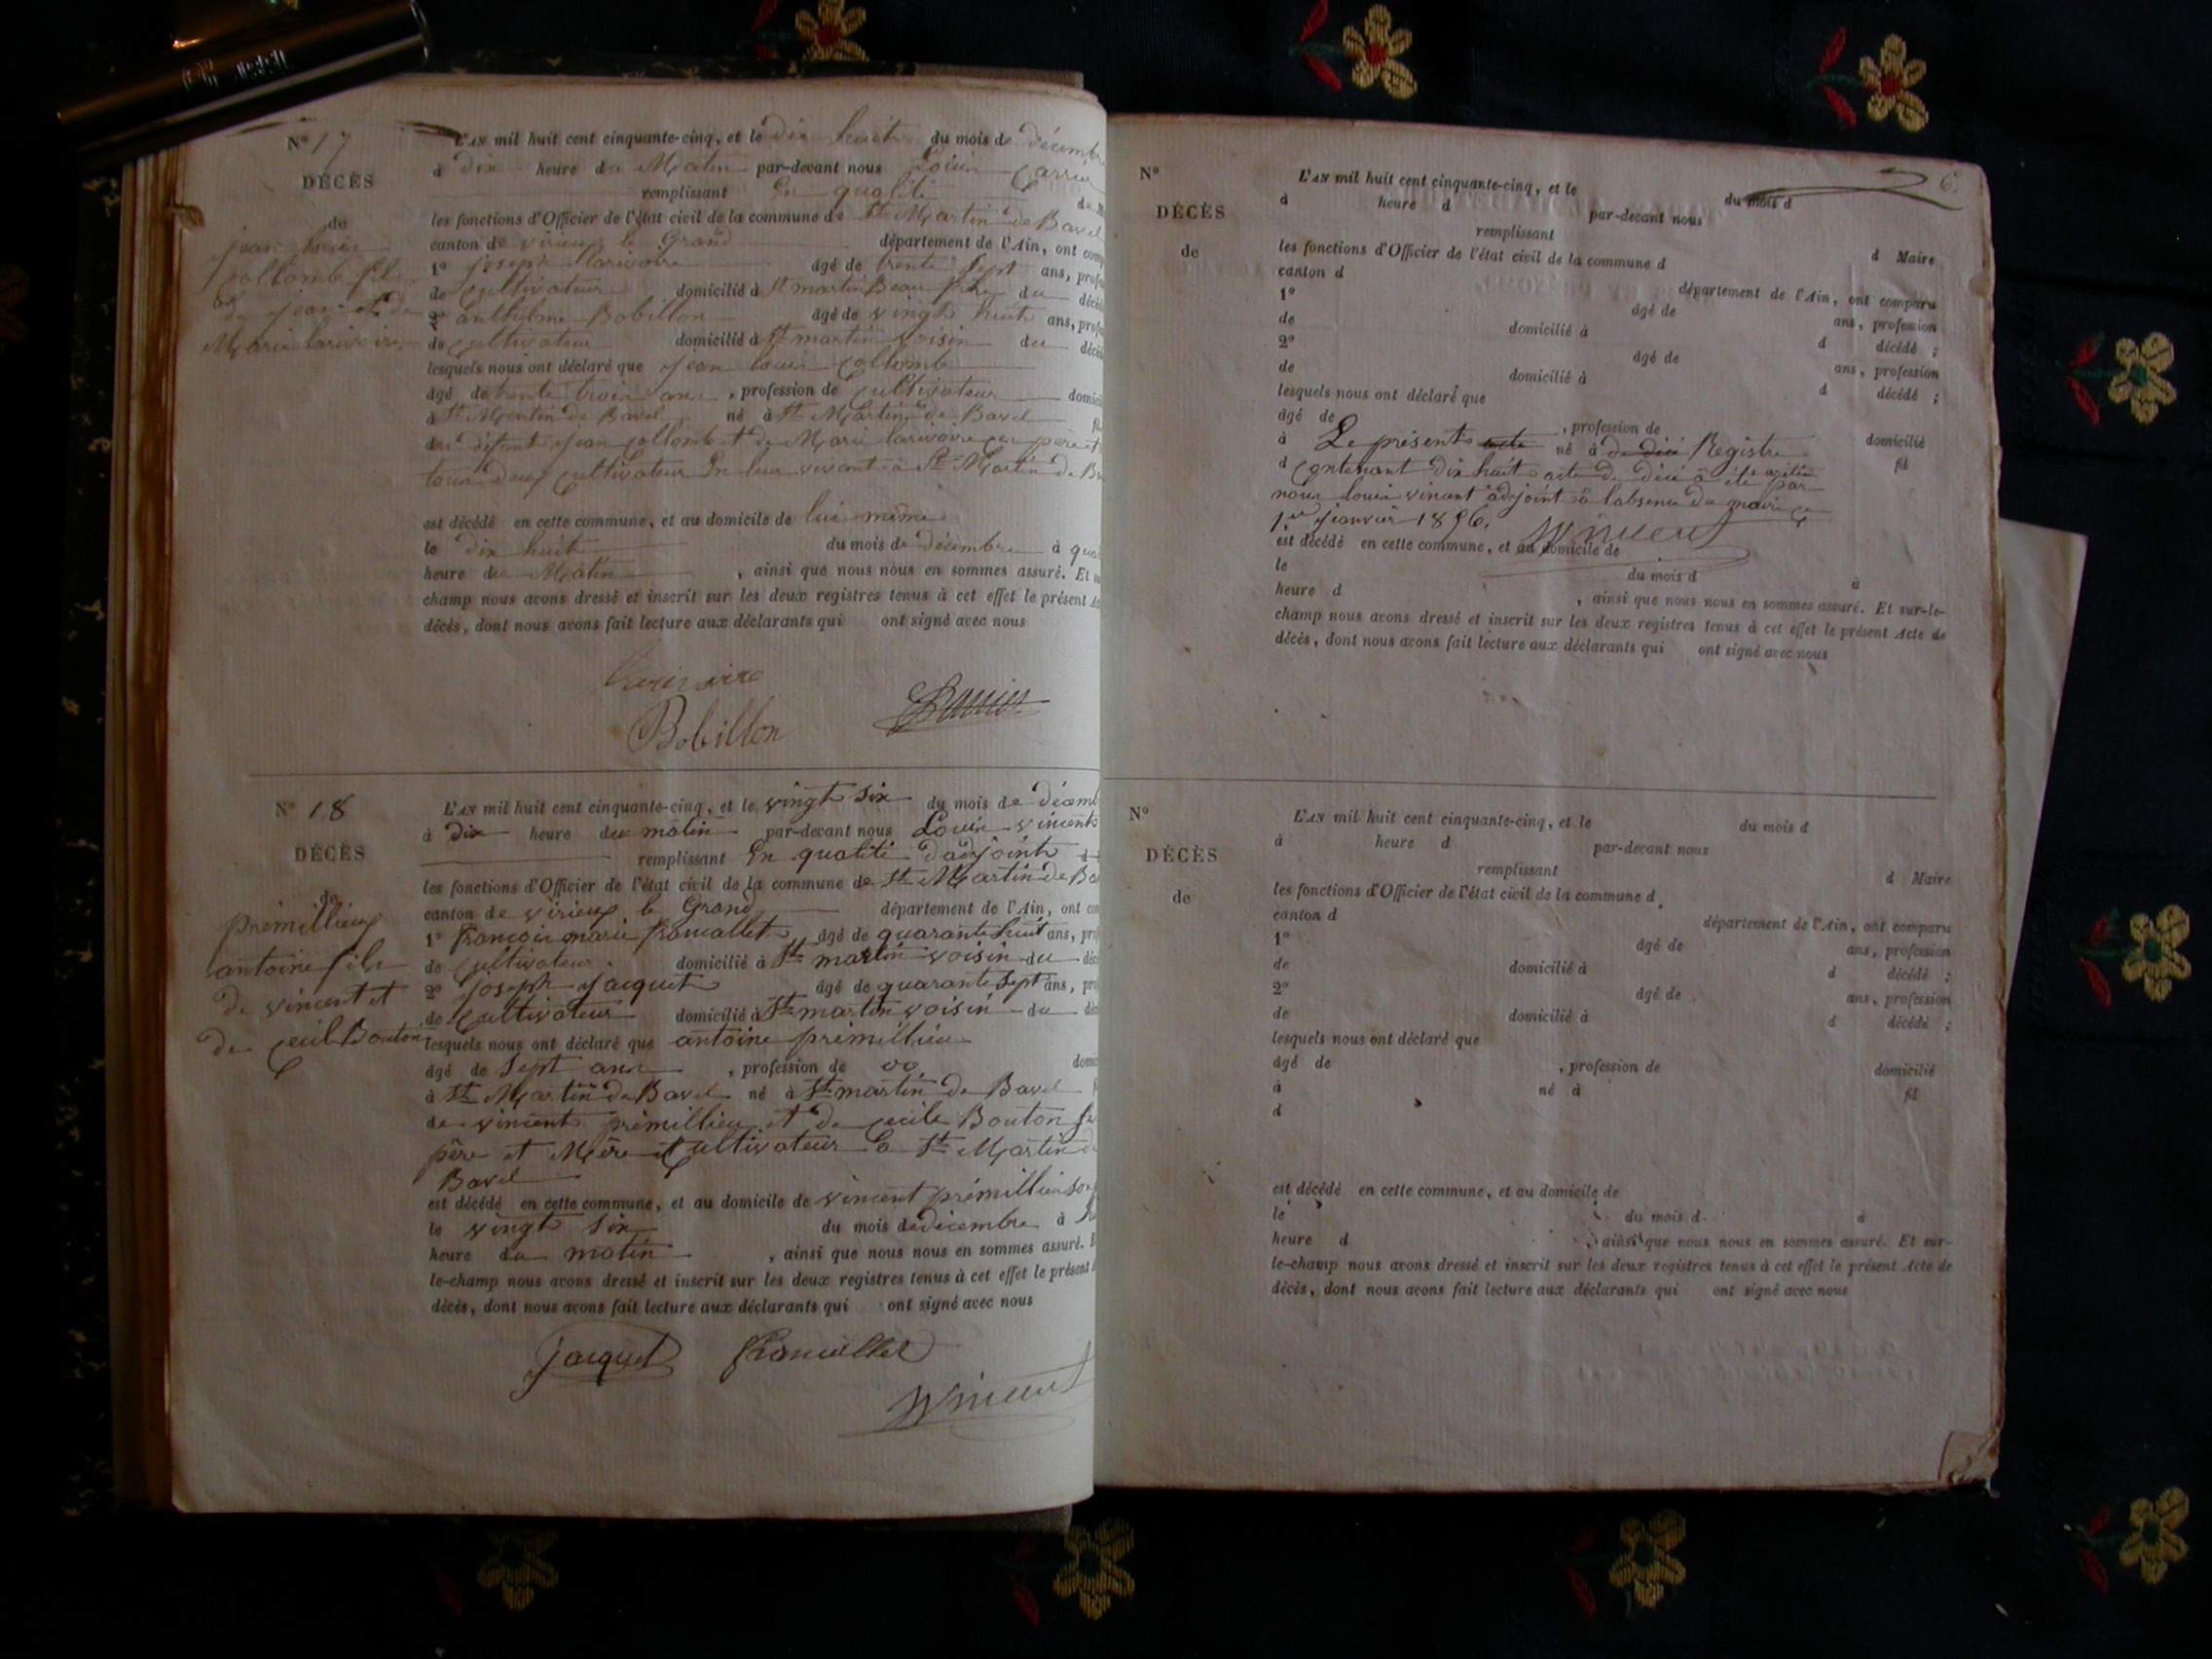 N° 17
DÉCÈS
de
jean louis
collomb fils
de jean et de
Marie larivoire
L'AN mil huit cent cinquante-cinq, et le dix huit du mois de décemb
à dix heure du Matin par-devant nous Louis Carrier
remplissant En qualité de M
les fonctions d'Officier de l'état civil de la commune de St Martin de Bavel
canton de virieux le Grand département de l'Ain, ont comp
1° joseph larivoire âgé de trente sept ans, profe
de Cultivateur domicilié à St martin Beau frère du décéd
2° anthelme Bobillon âgé de vingt huit ans, profe
de cultivateur domicilié à St martin voisin du décéd
lesquels nous ont déclaré que jean louis Collomb
âgé de trente trois ans , profession de Cultivateur domici
à St Martin de Bavel né à St Martin de Bavel
de défunt jean collomb et de Marie larivoire père et
tous deux Cultivateur En leur vivant à St Martin de B
est décédé en cette commune, et au domicile de lui même
le dix huit du mois de décembre à qua
heure du Matin , ainsi que nous nous en sommes assuré. Et
champ nous avons dressé et inscrit sur les deux registres tenus à cet effet le présent Ac
décès, dont nous avons fait lecture aux déclarants qui ont signé avec nous
Larivoire
Bobillon
N° 18
DÉCÈS
de
prémillieux
antoine fils
de vincent et
de cecile Bouton
L'AN mil huit cent cinquante-cinq, et le vingt six du mois de décem
à dix heure du matin par-devant nous Louis vincent
remplissant En qualité d'adjoint
les fonctions d'Officier de l'état civil de la commune de St Martin de Ba
canton de virieux le Grand département de l'Ain, ont co
1° françois marie francallet âgé de quarante huit ans, pro
de Cultivateur domicilié à St martin voisin du déc
2° joseph jacquet âgé de quarante sept ans, pro
de Cultivateur domicilié à St martin voisin du déc
lesquels nous ont déclaré que antoine prémillieu
âgé de Sept ans , profession de oo domic
à St Martin de Bavel né à St martin de Bavel
de vincent prémillieu et de cecile Bouton Ses
père et Mère Cultivateur à St Martin de
Bavel
est décédé en cette commune, et au domicile de vincent prémillieu son
le vingt six du mois de décembre à
heure du matin , ainsi que nous nous en sommes assuré. E
le-champ nous avons dressé et inscrit sur les deux registres tenus à cet effet le présent
décès, dont nous avons fait lecture aux déclarants qui ont signé avec nous
Jacquet francallet
Vincent
6
N°
DÉCÈS
de
L'AN mil huit cent cinquante-cinq, et le du mois d
à heure d par-devant nous
remplissant d Maire
les fonctions d'Officier de l'état civil de la commune d
canton d département de l'Ain, ont comparu
1° âgé de ans, profession
de domicilié à d décédé ;
2° âgé de ans, profession
de domicilié à d décédé ;
lesquels nous ont déclaré que
âgé de , profession de domicilié
à Le présent acte né à de décé Registre fil
d Contenant dix huit acte de décé à été arêtée par
nous louis vincent adjoint à l'absence du maire ce
1er janvier 1856. Vincent
est décédé en cette commune, et au domicile de
le du mois d à
heure d , ainsi que nous nous en sommes assuré. Et sur-le-
champ nous avons dressé et inscrit sur les deux registres tenus à cet effet le présent Acte de
décès, dont nous avons fait lecture aux déclarants qui ont signé avec nous
N°
DÉCÈS
de
L'AN mil huit cent cinquante-cinq, et le du mois d
à heure d par-devant nous
remplissant d Maire
les fonctions d'Officier de l'état civil de la commune d
canton d département de l'Ain, ont comparu
1° âgé de ans, profession
de domicilié à d décédé ;
2° âgé de ans, profession
de domicilié à d décédé ;
lesquels nous ont déclaré que
âgé de , profession de domicilié
à né à fil
d
est décédé en cette commune, et au domicile de
le du mois d à
heure d , ainsi que nous nous en sommes assuré. Et sur-
le-champ nous avons dressé et inscrit sur les deux registres tenus à cet effet le présent Acte de
décès, dont nous avons fait lecture aux déclarants qui ont signé avec nous